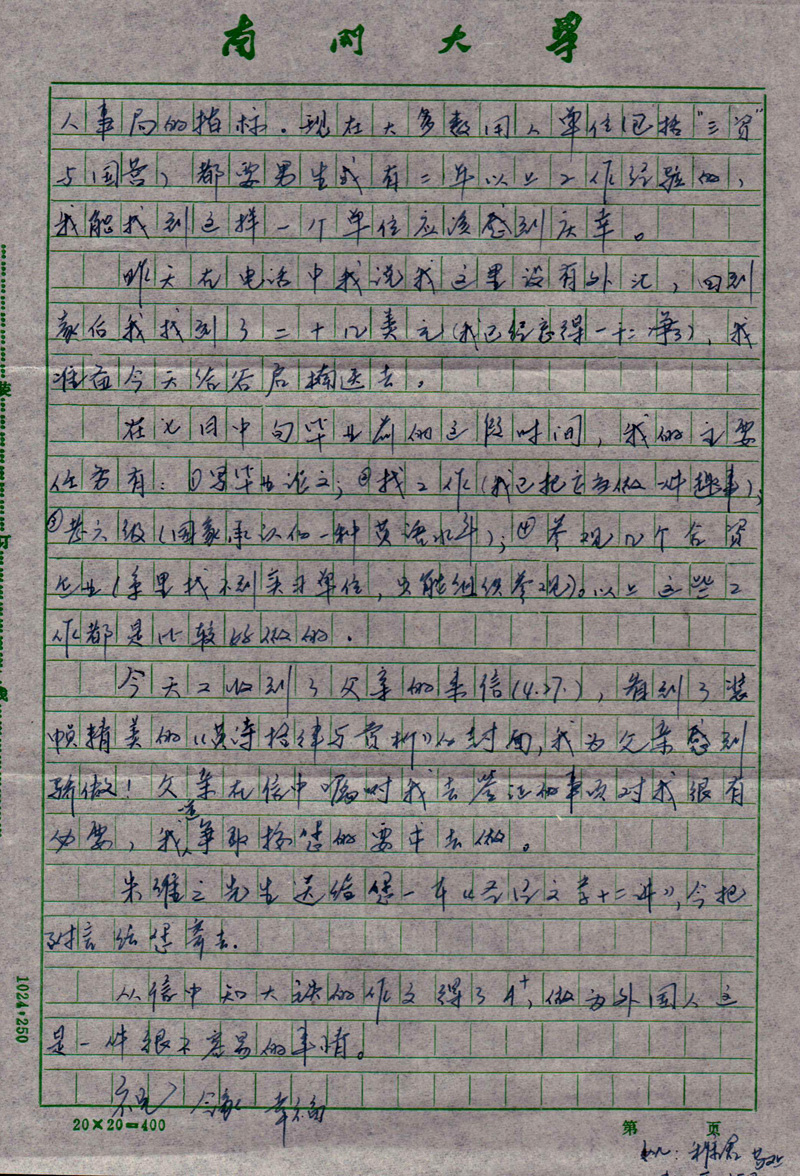 南开大学
人事局的指标。现在大多数用人单位(包括"三资"
与国营)都要男生或有二年以上工作经验的,
我能找到这样一个单位应该感到庆幸。
昨天在电话中我说我这里没有外汇,回到
家后我找到了二十几美元(我已经忘得一干二净了),我
准备今天给谷启楠送去。
在七月中旬毕业前的这段时间,我的主要
任务有:①写毕业论文;②找工作(我已把它当做一件趣事);
③考六级(国家承认的一种英语水平);④参观几个合资
企业(系里找不到实习单位,只能组织参观)。以上这些工
作都是比较好做的。
今天又收到了父亲的来信(4.27.),看到了装
帧精美的《英诗格律与赏析》的封面,我为父亲感到
骄傲!父亲在信中嘱咐我去签证的事项对我很有
必要,我这争取按您的要求去做。
朱维之先生送给您一本《圣经文学十二讲》,今把
附言给您寄去.
从信中知大 的作文得了A+,做为外国人这
是一件很不容易的事情。
祝 合家 幸福
20×20=400
第 页
1024·250
装
订